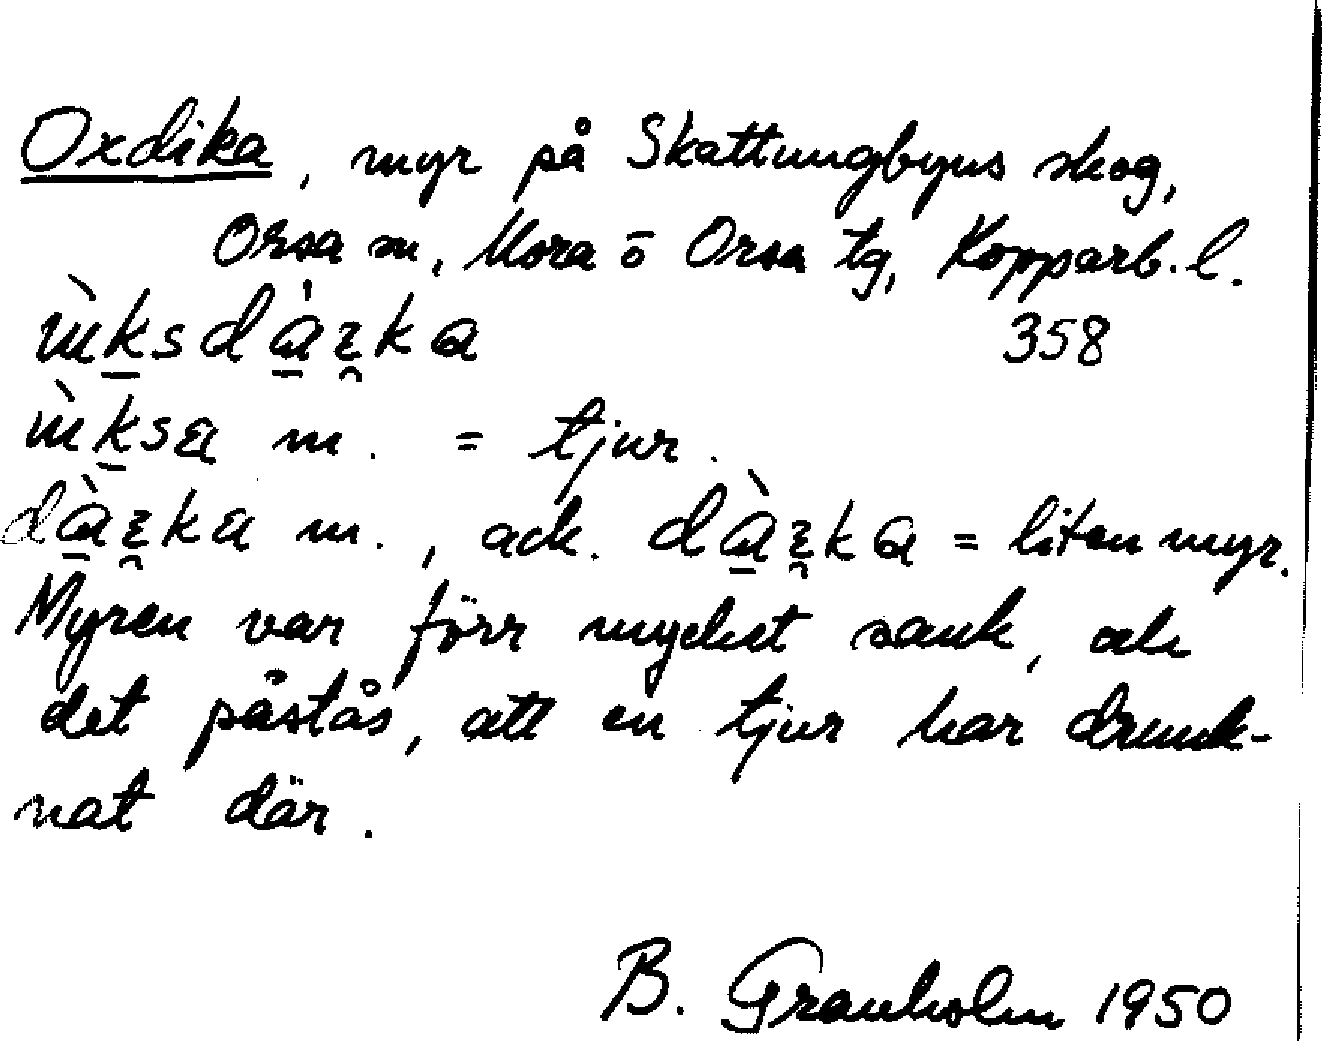 Oxdika, myr på Skattungbyns skog,
Orsa sn, Mora o Orsa tg, Kopparb. l.
ùksdàɪka 358
ùksa m. = tjur.
dàɪka m., ack. dàɪka = liten myr.
Myren var förr mycket sank, och
det påstås, att en tjur har drunk-
nat där.
B. Granholm 1950